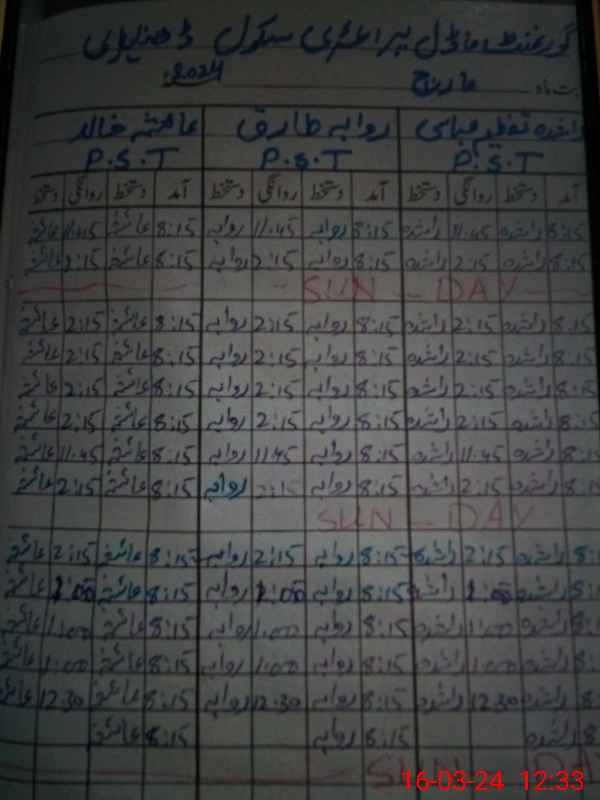 گورنمنٹ ماڈل پرائمری سکول
بت ماہ مارچ 2024
راشدہ تعظیم عباسی روابہ طارق عائشہ خالد
P.S.T P.S.T P.S.T
آمد دستخط روانگی دستخط آمد دستخط روانگی دستخط آمد دستخط روانگی دستخط
8:15 راشدہ 11.45 راشدہ 8:15 روابہ 11.45 روابہ 8:15 عائشہ 11.45 عائشہ
8:15 راشدہ 2:15 راشدہ 8:15 روابہ 2:15 روابہ 8:15 عائشہ 2:15 عائشہ
SUN - DAY
8:15 راشدہ 2:15 راشدہ 8:15 روابہ 2:15 روابہ 8:15 عائشہ 2:15 عائشہ
8:15 راشدہ 2:15 راشدہ 8:15 روابہ 2:15 روابہ 8:15 عائشہ 2:15 عائشہ
8:15 راشدہ 2:15 راشدہ 8:15 روابہ 2:15 روابہ 8:15 عائشہ 2:15 عائشہ
8:15 راشدہ 2:15 راشدہ 8:15 روابہ 2:15 روابہ 8:15 عائشہ 2:15 عائشہ
8:15 راشدہ 11.45 راشدہ 8:15 روابہ 11.45 روابہ 8:15 عائشہ 11.45 عائشہ
8:15 راشدہ 2:15 راشدہ 8:15 روابہ 2:15 روابہ 8:15 عائشہ 2:15 عائشہ
SUN - DAY
8:1 راشدہ 2:15 راشدہ 8:15 روابہ 2:15 روابہ 8:15 عائشہ 2:15 عائشہ
8:1 راشدہ 1:00 راشدہ 8:15 روابہ 1:00 روابہ 8:15 عائشہ 1:00 عائشہ
8:1 راشدہ 1:00 راشدہ 8:15 روابہ 1:00 روابہ 8:15 عائشہ 1:00 عائشہ
8:1 راشدہ 1:00 راشدہ 8:15 روابہ 1:00 روابہ 8:15 عائشہ 1:00 عائشہ
8: راشدہ 12:30 راشدہ 8:15 روابہ 12:30 روابہ 8:15 عائشہ 12:30 عائشہ
8 راشدہ 8:15 روابہ 8:15 عائشہ
SUN - DA
16-03-24 12:33